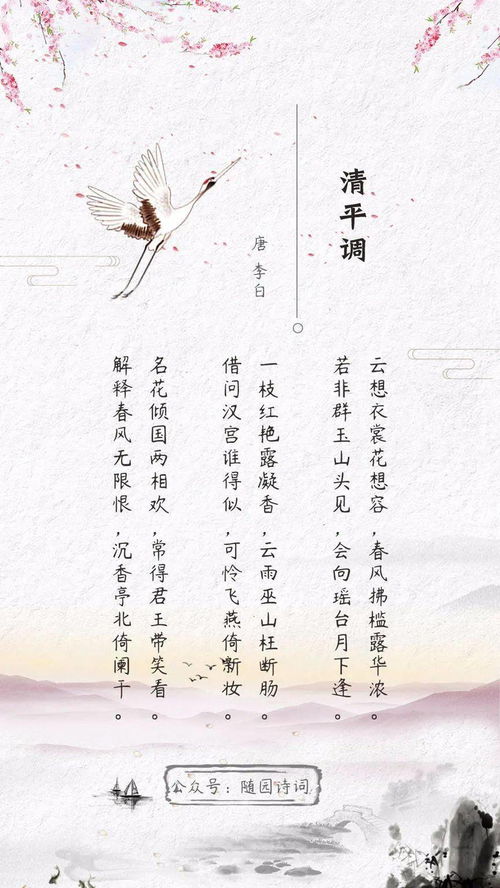 清平调
唐 李白
云想衣裳花想容，春风拂槛露华浓。
若非群玉山头见，会向瑶台月下逢。
一枝红艳露凝香，云雨巫山枉断肠。
借问汉宫谁得似，可怜飞燕倚噺妆。
名花倾国两相欢，常得君王带笑看。
解释春风无限恨，沉香亭北倚阑干。
公众号：随园诗词